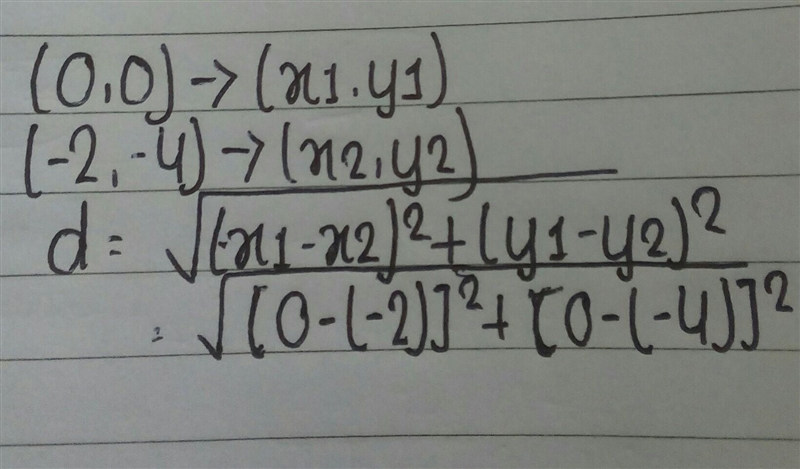 (0,0) → (x1.y1)
(-2,-4) → (x2,y2)
d = √(x1-x2)²+(y1-y2)²
= √[0-(-2)]²+[0-(-4)]²